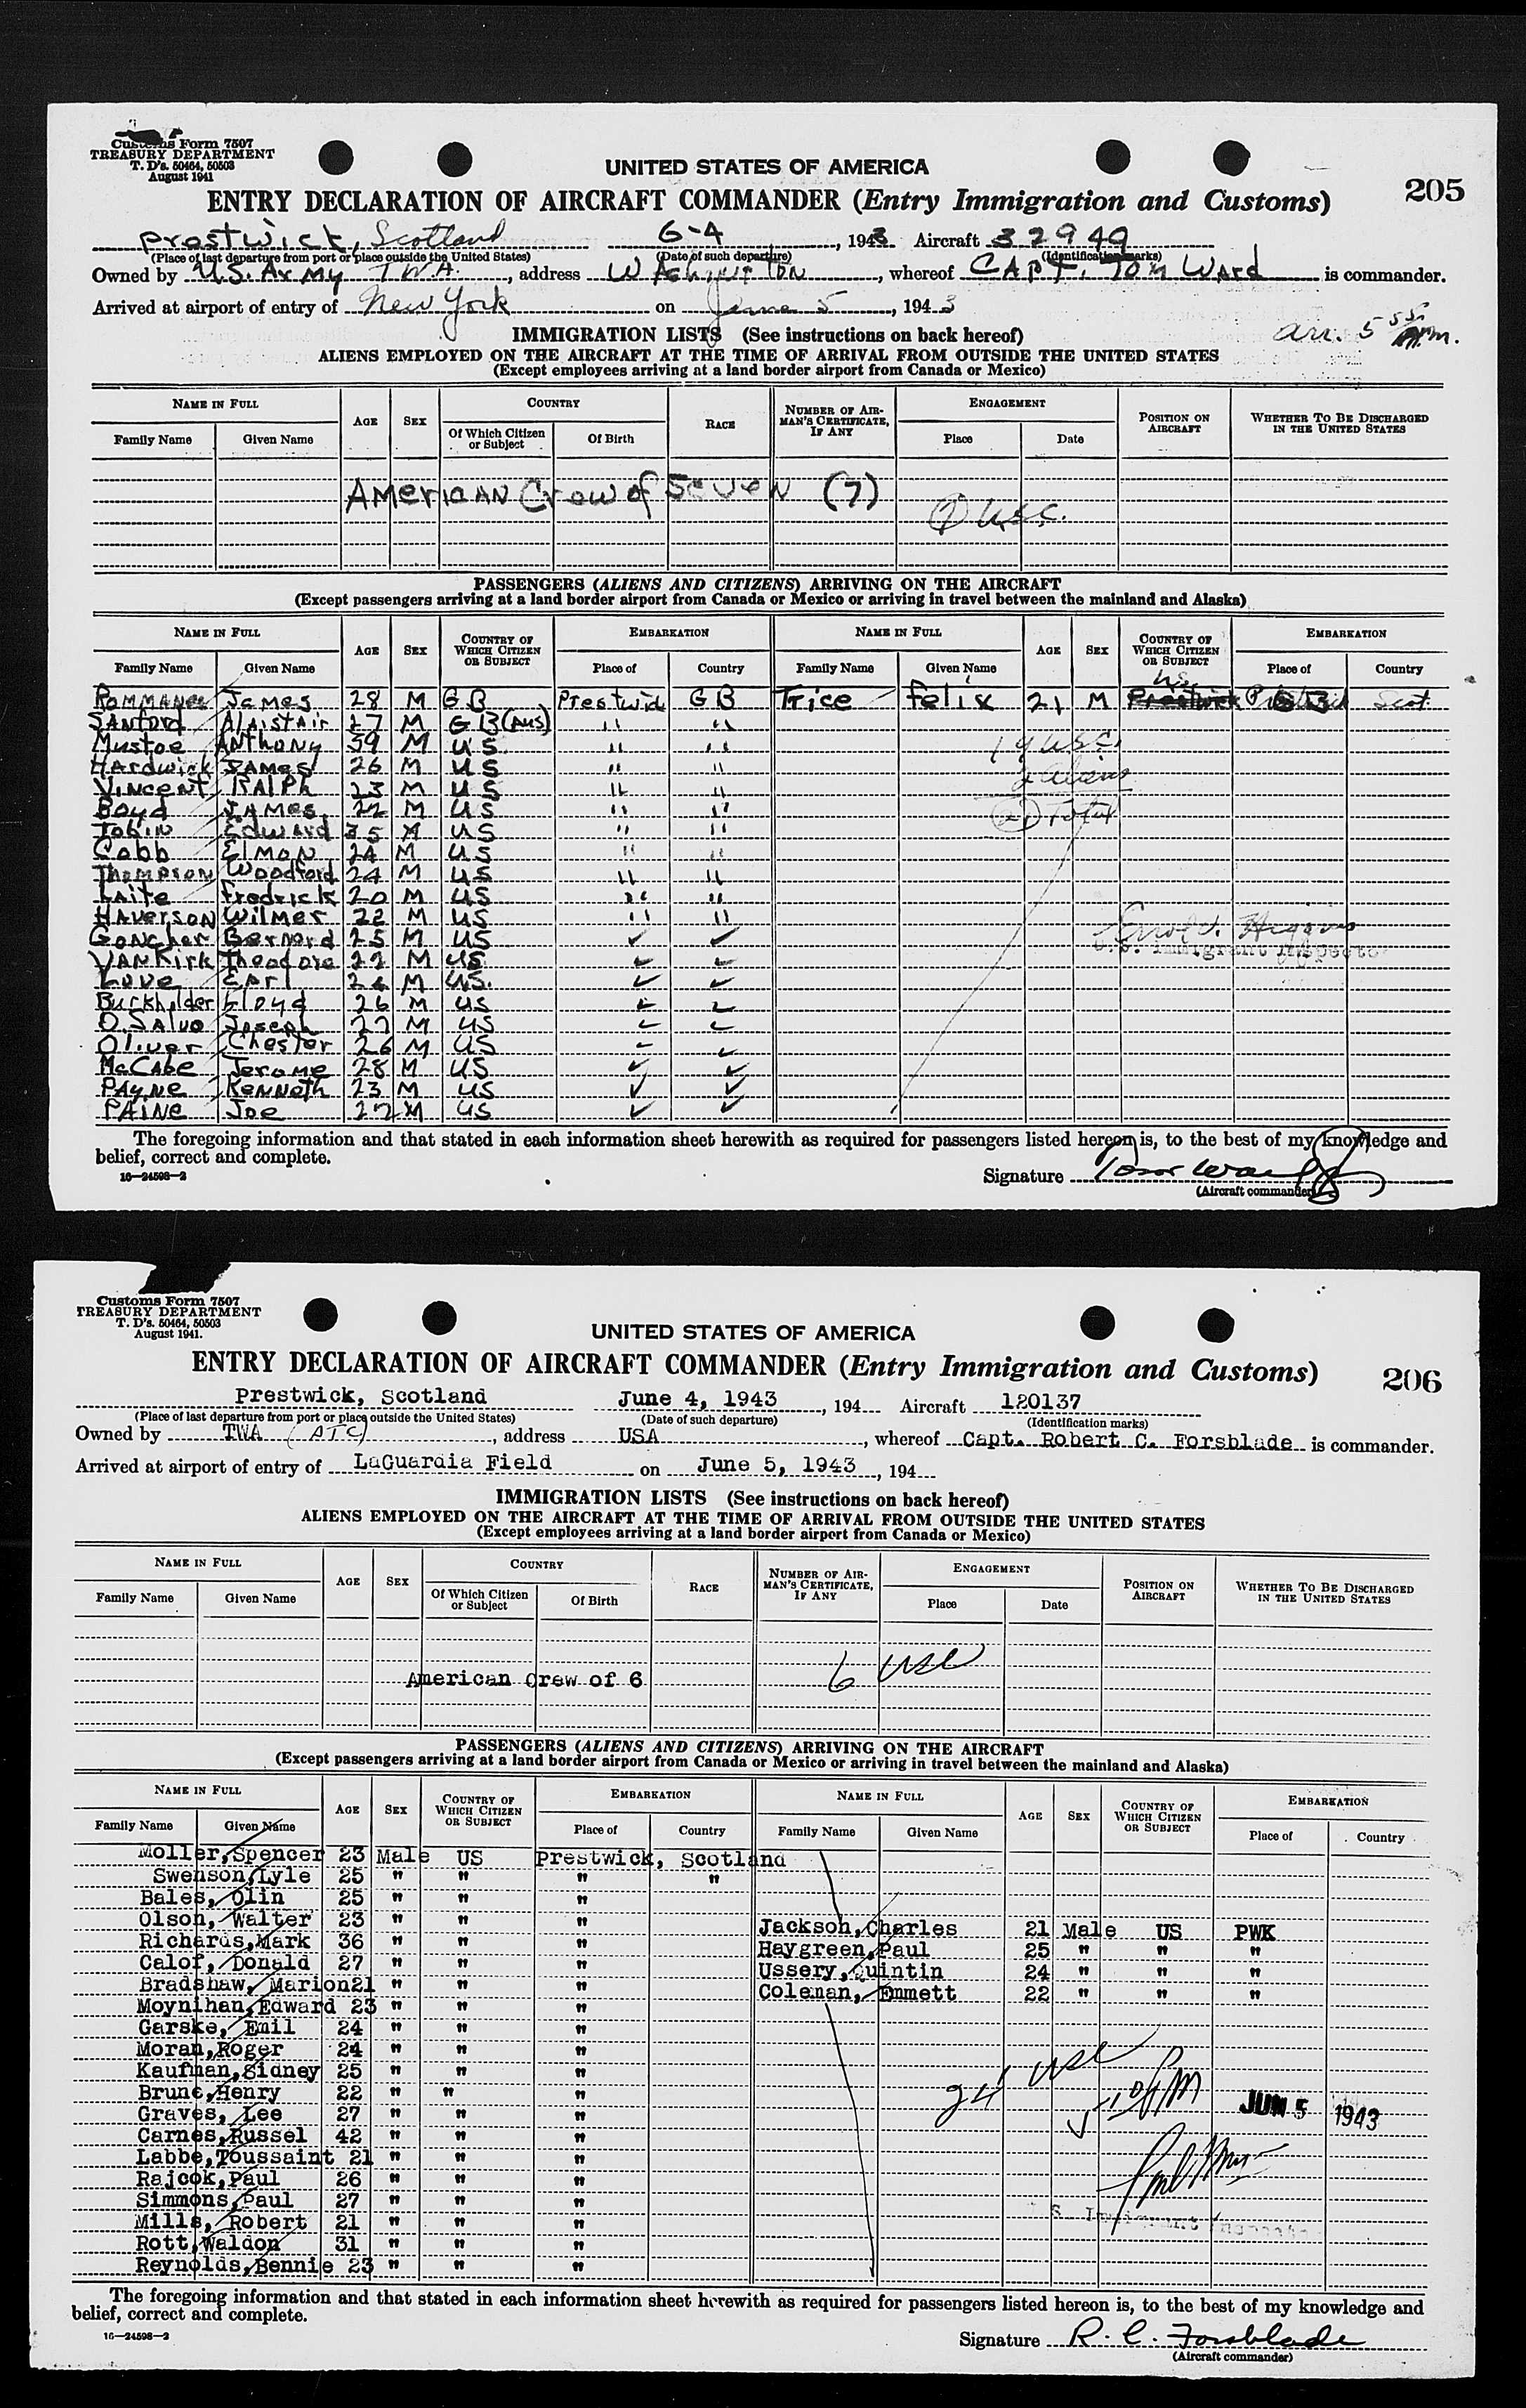 Customs Form 7507
TREASURY DEPARTMENT
T. D's. 50464, 50503
August 1941
UNITED STATES OF AMERICA
205
ENTRY DECLARATION OF AIRCRAFT COMMANDER (Entry Immigration and Customs)
Prestwick, Scotland 6-4, 1943 Aircraft 32949
(Place of last departure from port or place outside the United States) (Date of such departure) (Identification marks)
Owned by U.S. Army TWA., address WAshington, whereof CAPt. Tom WArd is commander.
Arrived at airport of entry of New York on June 5, 1943
arr. 5 55 m.
IMMIGRATION LISTS (See instructions on back hereof)
ALIENS EMPLOYED ON THE AIRCRAFT AT THE TIME OF ARRIVAL FROM OUTSIDE THE UNITED STATES
(Except employees arriving at a land border airport from Canada or Mexico)
NAME IN FULL AGE SEX COUNTRY RACE NUMBER OF AIR-MAN'S CERTIFICATE, IF ANY ENGAGEMENT POSITION ON AIRCRAFT WHETHER TO BE DISCHARGED IN THE UNITED STATES
Family Name Given Name Of Which Citizen or Subject Of Birth Place Date
AMERICAN Crew of SEVEN (7)
7 USC.
PASSENGERS (ALIENS AND CITIZENS) ARRIVING ON THE AIRCRAFT
(Except passengers arriving at a land border airport from Canada or Mexico or arriving in travel between the mainland and Alaska)
NAME IN FULL AGE SEX COUNTRY OF WHICH CITIZEN OR SUBJECT EMBARKATION NAME IN FULL AGE SEX COUNTRY OF WHICH CITIZEN OR SUBJECT EMBARKATION
Family Name Given Name Place of Country Family Name Given Name Place of Country
James 28 M GB Prestwick GB Trice Felix 21 M US. Prestwick Scot.
SANford AlAistAir 27 M GB (Aus) " "
Mustoe ANthony 39 M US " " 19 USC.
HArdwick JAMes 26 M US " " 2 Aliens
VINCENT RAlPh 23 M US " "
Boyd JAMes 22 M US " " 21 Total
Tobin Edward 35 M US " "
Cobb ElMON 24 M US " "
THOMPSON Woodford 24 M US " "
LAite Fredrick 20 M US " "
HAVERSON Wilmer 22 M US " "
Goncher Bernard 25 M US ✓ ✓
U.S. Immigrant Inspector
VAN Kirk Theodore 22 M US ✓ ✓
Love Earl 24 M US. ✓ ✓
Burkholder Lloyd 26 M US ✓ ✓
O.SAlvo Joseph 27 M US ✓ ✓
Oliver Chester 26 M US ✓ ✓
McCAbe Jerome 28 M US ✓ ✓
PAYNE KENNeth 23 M US ✓ ✓
PAINE Joe 22 M US ✓ ✓
The foregoing information and that stated in each information sheet herewith as required for passengers listed hereon is, to the best of my knowledge and
belief, correct and complete.
16—24598-2
Signature Tom Ward
(Aircraft commander)
Customs Form 7507
TREASURY DEPARTMENT
T. D's. 50464, 50503
August 1941.
UNITED STATES OF AMERICA
ENTRY DECLARATION OF AIRCRAFT COMMANDER (Entry Immigration and Customs)
206
Prestwick, Scotland June 4, 1943, 194 Aircraft 120137
(Place of last departure from port or place outside the United States) (Date of such departure) (Identification marks)
Owned by TWA (ATC), address USA, whereof Capt. Robert C. Forsblade is commander.
Arrived at airport of entry of LaGuardia Field on June 5, 1943, 194
IMMIGRATION LISTS (See instructions on back hereof)
ALIENS EMPLOYED ON THE AIRCRAFT AT THE TIME OF ARRIVAL FROM OUTSIDE THE UNITED STATES
(Except employees arriving at a land border airport from Canada or Mexico)
NAME IN FULL AGE SEX COUNTRY RACE NUMBER OF AIR-MAN'S CERTIFICATE, IF ANY ENGAGEMENT POSITION ON AIRCRAFT WHETHER TO BE DISCHARGED IN THE UNITED STATES
Family Name Given Name Of Which Citizen or Subject Of Birth Place Date
American Crew of 6 6 USC
PASSENGERS (ALIENS AND CITIZENS) ARRIVING ON THE AIRCRAFT
(Except passengers arriving at a land border airport from Canada or Mexico or arriving in travel between the mainland and Alaska)
NAME IN FULL AGE SEX COUNTRY OF WHICH CITIZEN OR SUBJECT EMBARKATION NAME IN FULL AGE SEX COUNTRY OF WHICH CITIZEN OR SUBJECT EMBARKATION
Family Name Given Name Place of Country Family Name Given Name Place of Country
Moller,Spencer 23 Male US Prestwick, Scotland
Swenson,Lyle 25 " " " "
Bales, Olin 25 " " "
Olson, Walter 23 " " " Jackson,Charles 21 Male US PWK
Richards,Mark 36 " " " Haygreen,Paul 25 " " "
Calof, Donald 27 " " " Ussery,Quintin 24 " " "
Bradshaw, Marion21 " " " Coleman, Emmett 22 " " "
Moynihan,Edward 23 " " "
Garske, Emil 24 " " "
Moran,Roger 24 " " "
Kaufman,Sidney 25 " " "
Brune,Henry 22 " " " 24 USC
Graves, Lee 27 " " " JUN 5 1943
Carnes,Russel 42 " " "
Labbe,Toussaint 21 " " "
Rajcok,Paul 26 " " "
Simmons,Paul 27 " " "
Mills, Robert 21 " " " S. Immigrant Inspector
Rott,Waldon 31 " " "
Reynolds,Bennie 23 " " "
The foregoing information and that stated in each information sheet herewith as required for passengers listed hereon is, to the best of my knowledge and
belief, correct and complete.
16—24598-2
Signature R. C. Forsblade
(Aircraft commander)